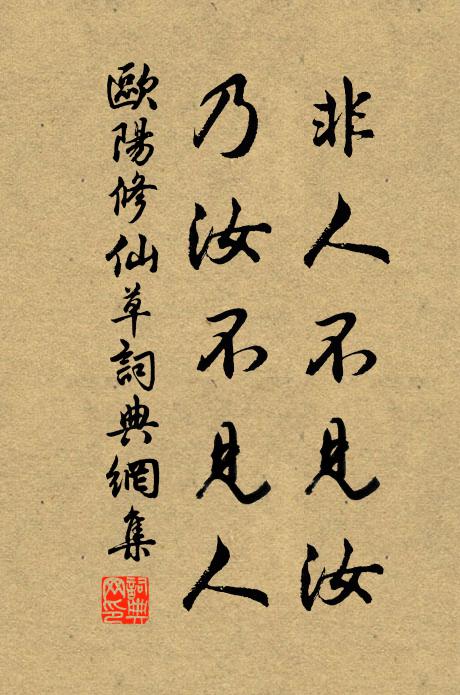 非人不見汝
乃汝不見人
歐陽修仙草詞典網集
詞典網印